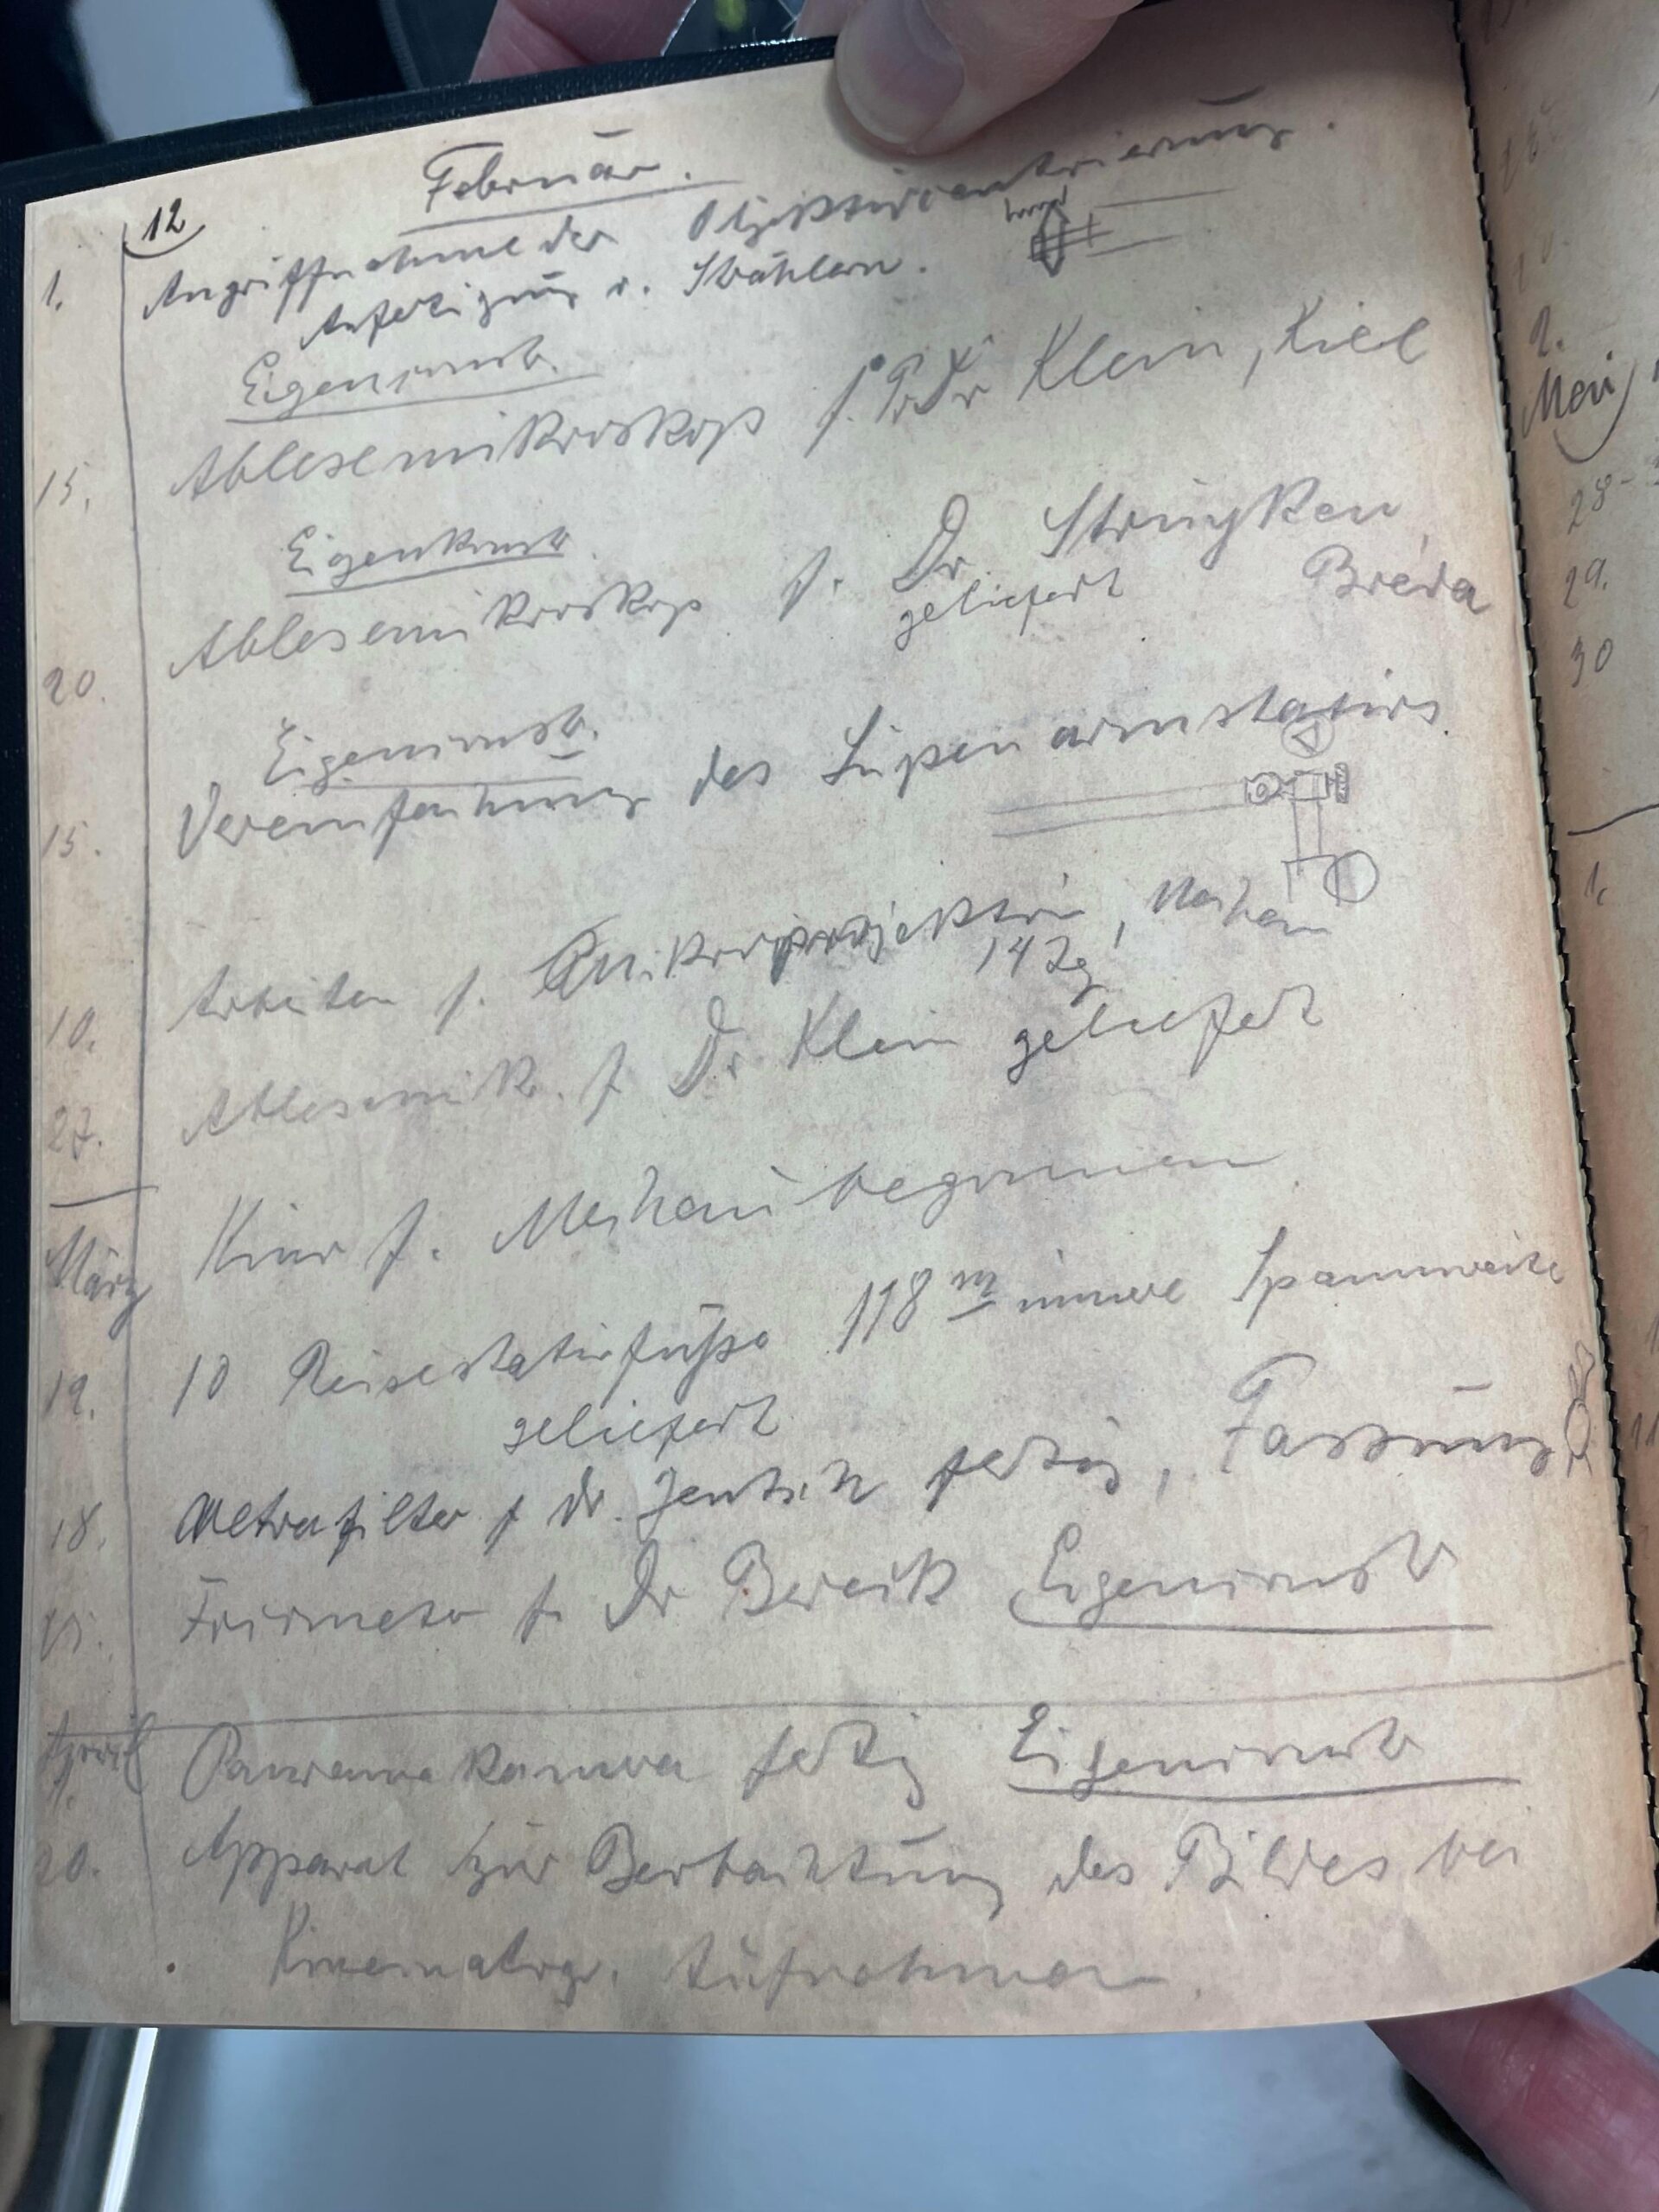 Februar.
12
1. Angriffnahme der Objektivzentrierung.
Anfertigung v. Stählern.
Eigenkonst.
15. Ablesemikroskop f. Pr. Dr Klein, Kiel
Eigenkonst.
20. Ablesemikroskop f. Dr. Stringken
geliefert Breda
Eigenkonst.
15. Vereinfachung des Lupenarmstativs
10. Arbeiten f. Mikroprojektion, Mechau
14 Tg
27. Ablesemik. f Dr. Klein geliefert
März Kino f. Mechau begonnen
19. 10 Reisestativfüsse 118 m innere Spannweite
geliefert
18. Ultrafilter f Dr. Jentsch fertig, Fassung
Fotometer f. Dr Bereck Eigenkonst
April
1. Panorama Kamera fertig Eigenkonst
20. Apparat zur Beobachtung des Bildes bei
Kinematogr. Aufnahmen.
2.
Mai
28-
29.
30
1.